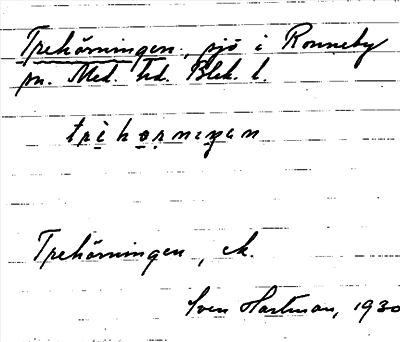 Trehörningen, sjö i Ronneby
sn. Med. hd. Blek. l.
trihorningen
Trehörningen, ek.
Sven Hartman, 1930